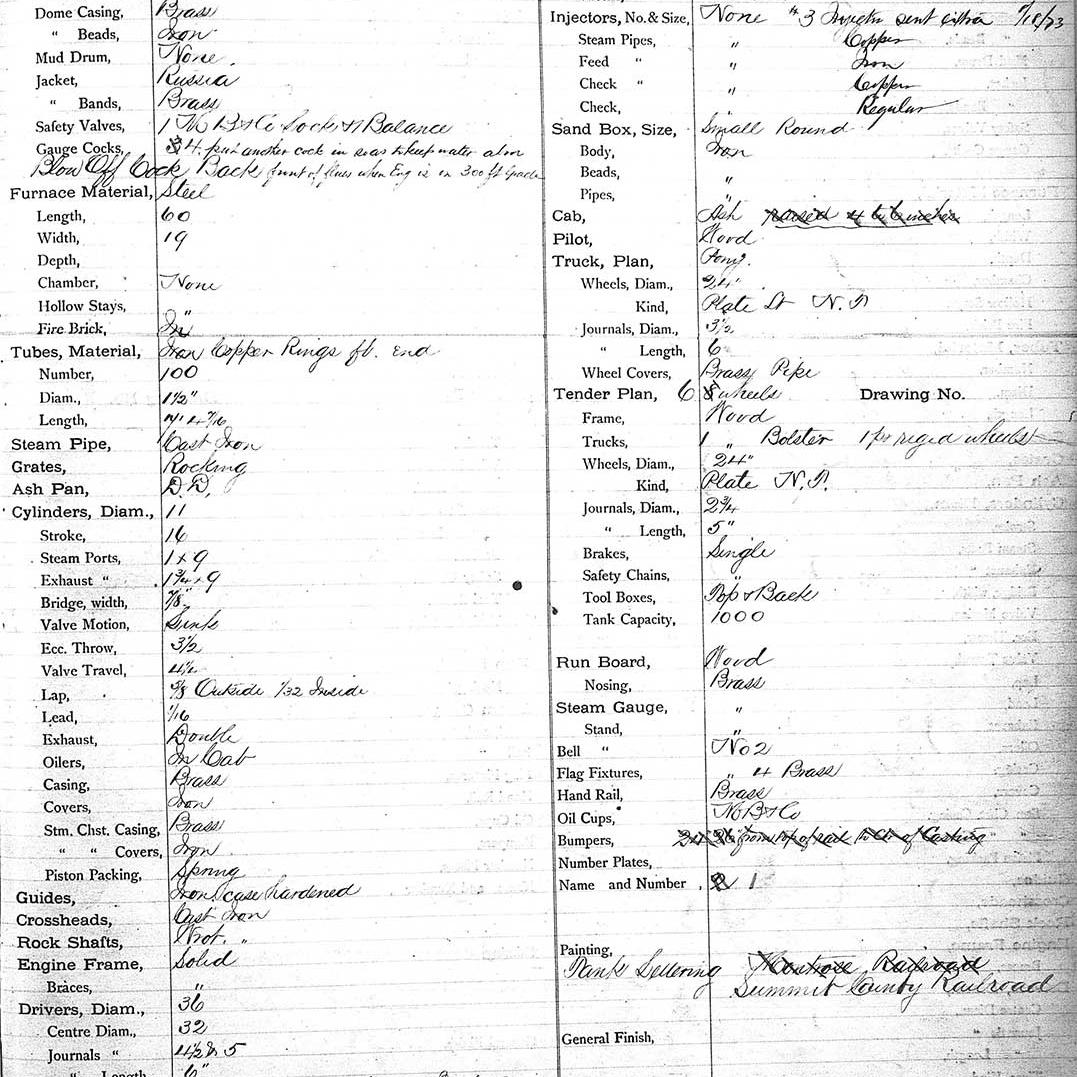 Dome Casing, Brass
" Beads, Iron
Mud Drum, None.
Jacket, Russia
" Bands, Brass
Safety Valves, 1 M B & Co Lock & 1 Balance
Gauge Cocks, 4. put another cock in so as to keep water
Blow Off Cock Back front of flues when Eng is on 300 ft Grade
Furnace Material, Steel
Length, 60
Width, 19
Depth,
Chamber, None
Hollow Stays, "
Fire Brick, In
Tubes, Material, Iron Copper Rings fb. end
Number, 100
Diam., 1½"
Length,
Steam Pipe, Cast Iron
Grates, Rocking
Ash Pan, D.D.
Cylinders, Diam., 11
Stroke, 16
Steam Ports, 1 x 9
Exhaust " 1¾ x 9
Bridge, width, ⅞"
Valve Motion, Link
Ecc. Throw, 3½
Valve Travel,
Lap, ⅝ Outside 1/32 Inside
Lead, 1/16
Exhaust, Double
Oilers, In Cab
Casing, Brass
Covers, Iron
Stm. Chst. Casing, Brass
" " Covers, Iron
Piston Packing, Spring
Guides, Iron, case hardened
Crossheads, Cast Iron
Rock Shafts, Wrot. "
Engine Frame, Solid
Braces, "
Drivers, Diam., 36
Centre Diam., 32
Journals " 4½ & 5
" Length 6"
Injectors, No. & Size, None # 3 Injector sent extra 7/18/73
Steam Pipes, " Copper
Feed " " Iron
Check " " Copper
Check, " Regular
Sand Box, Size, Small Round
Body, Iron
Beads, "
Pipes, "
Cab, Ash raised 4 to 6 inches
Pilot, Wood
Truck, Plan, Pony.
Wheels, Diam., 24"
Kind, Plate St N.P.
Journals, Diam., 3½
" Length, 6
Wheel Covers, Brass Pipe
Tender Plan, 6 wheels Drawing No.
Frame, Wood
Trucks, 1 " Bolster 1 pr regid wheels
Wheels, Diam., 24"
Kind, Plate N.P.
Journals, Diam., 2¾
" Length, 5"
Brakes, Single
Safety Chains, "
Tool Boxes, Top & Back
Tank Capacity, 1000
Run Board, Wood
Nosing, Brass
Steam Gauge, "
Stand, "
Bell " No 2
Flag Fixtures, " 4 Brass
Hand Rail, Brass
Oil Cups, No B & Co
Bumpers, 24 26" from top of rail to Ctr of Casting
Number Plates,
Name and Number, 2 1
Painting,
Tank Lettering Montrose Railroad
Summit County Railroad
General Finish,